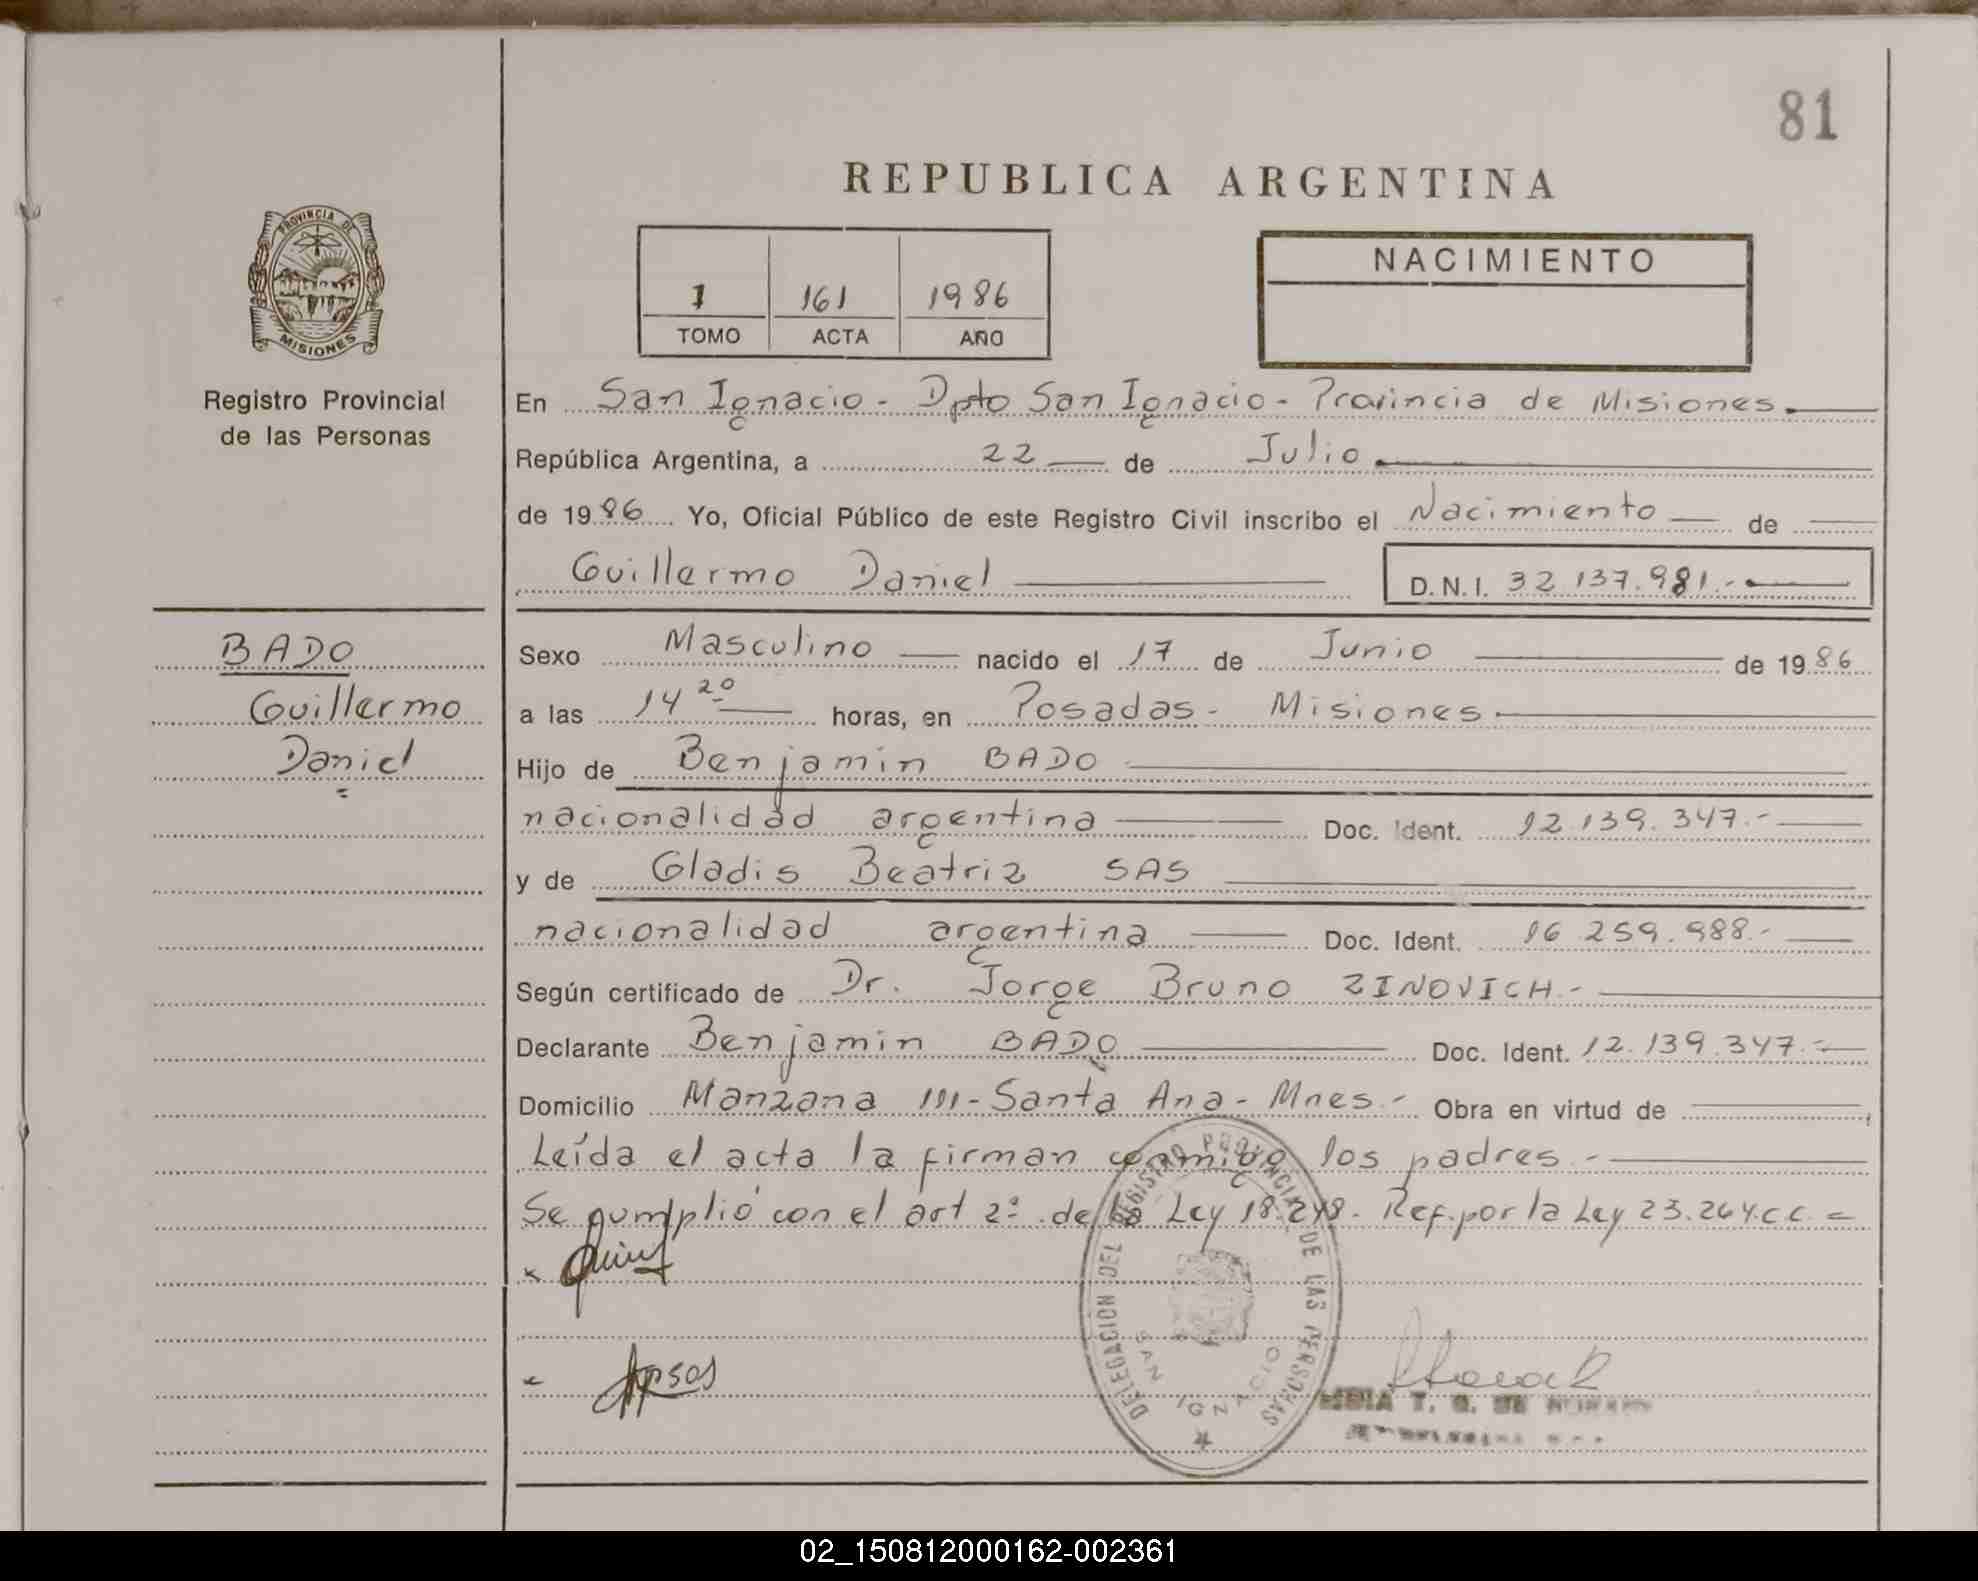 81
REPUBLICA ARGENTINA
PROVINCIA DE
MISIONES
Registro Provincial
de las Personas
1 161 1986
TOMO ACTA AÑO
NACIMIENTO
En San Ignacio - Dpto San Ignacio - Provincia de Misiones.
República Argentina, a 22 de Julio
de 1986 Yo, Oficial Público de este Registro Civil inscribo el Nacimiento de
Guillermo Daniel D.N.I. 32.137.981.-
BADO
Guillermo
Daniel
Sexo Masculino nacido el 17 de Junio de 1986
a las 14 20 horas, en Posadas - Misiones.
Hijo de Benjamin BADO
nacionalidad argentina Doc. Ident. 12.139.347.-
y de Gladis Beatriz SAS
nacionalidad argentina Doc. Ident. 16 259.988.-
Según certificado de Dr. Jorge Bruno ZINOVICH.-
Declarante Benjamin BADO Doc. Ident. 12.139.347.-
Domicilio Manzana III - Santa Ana - Mnes.- Obra en virtud de
Leída el acta la firman conmigo los padres.-
Se cumplió con el art 2º de la Ley 18.248. Ref. por la Ley 23.264.c.c. =
DELEGACION DEL REGISTRO PROVINCIAL DE LAS PERSONAS
SAN IGNACIO
T. G. DE
02_150812000162-002361